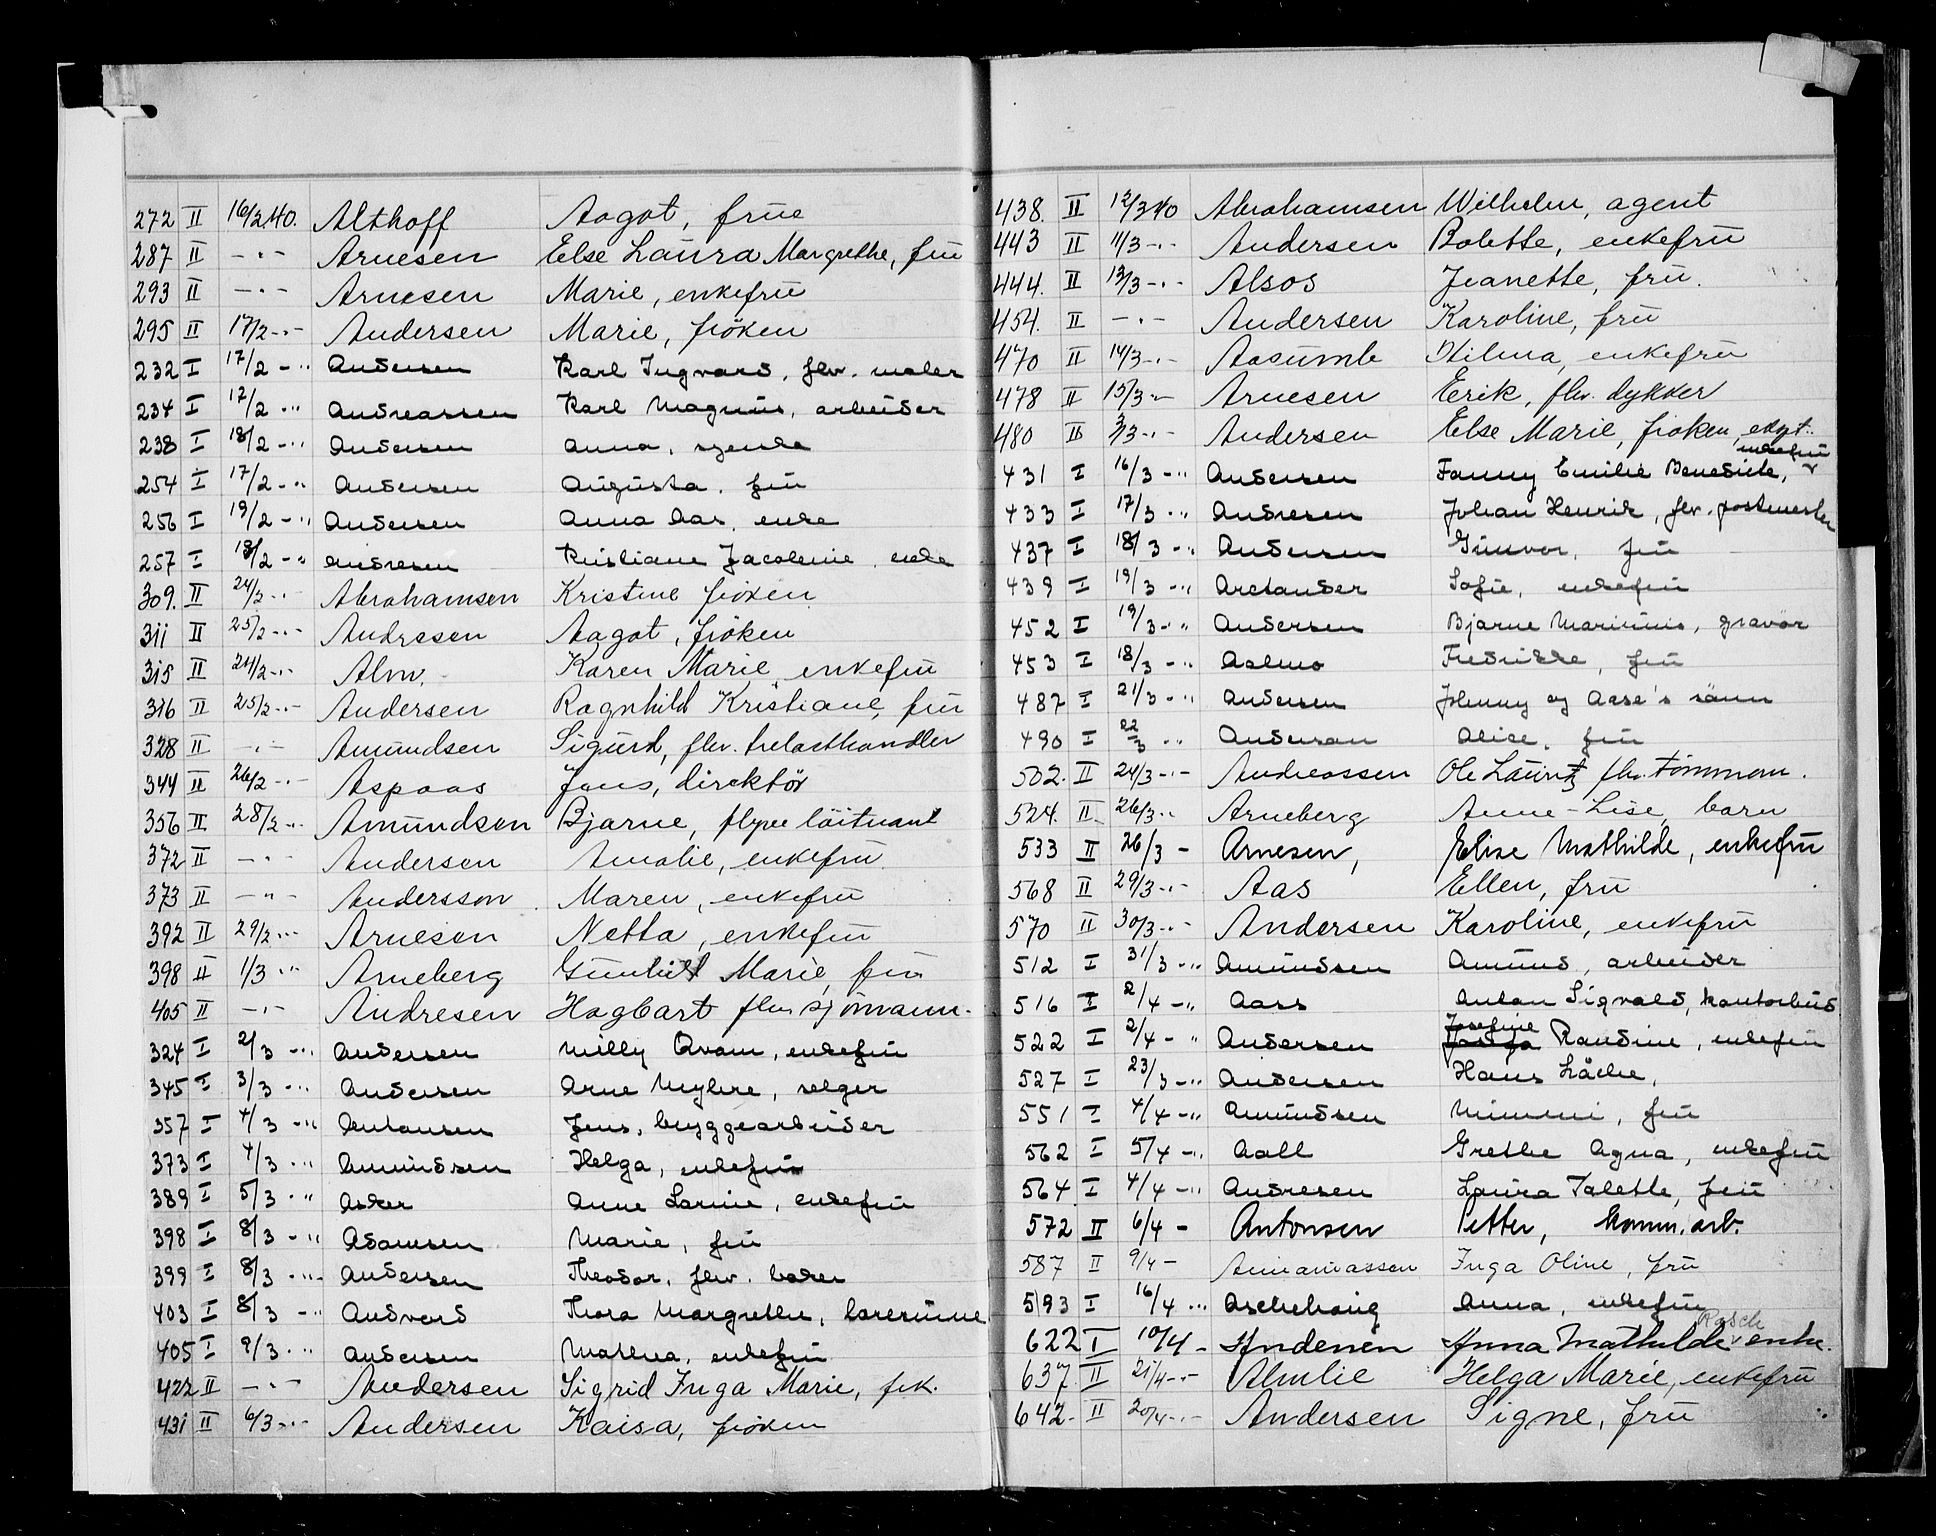 272 II 16/2 40. Althoff Aagot, frue
287 II -"- Arnesen Else Laura Margrethe, fru
293 II -"- Arnesen Marie, enkefru
295 II 17/2 -"- Andersen Marie, frøken
232 I 17/2 -"- Andersen Karl Ingvard, fhv. maler
234 I 17/2 -"- Andreassen Karl Magnus, arbeider
238 I 18/2 -"- Andersen Anna, syerske
254 I 17/2 -"- Andersen Augusta, fru
256 I 19/2 -"- Andersen Anna Aas, enke
257 I 18/2 -"- Andresen Kristiane Jacobine, enke
309. II 24/2 -"- Abrahamsen Kristine frøken
311 II 25/2 -"- Andresen Aagot, frøken
315 II 24/2 -"- Alm. Karen Marie, enkefru
316 II 25/2 -"- Andersen Ragnhild Kristiane, fru
328 II -"- Amundsen Sigurd, fhv. trelasthandler
344 II 26/2 -"- Aspaas Jens, direktör
356 II 28/2 -"- Amundsen Bjarne, flyver löitnant
372 II -"- Andersen Amalie, enkefru
373 II -"- Andersson Maren, enkefru
392 II 29/2 -"- Arnesen Netta, enkefru
398 II 1/3 -"- Arneberg Gunhild Marie, fru
405 II -"- Andresen Hagbart fhv. sjömann.
324 I 2/3 -"- Andersen Milly Avam, enkefru
345 I 3/3 -"- Andersen Arne Myhre, selger
357 I 4/3 -"- Antonsen Jens, bryggearbeider
373 I 4/3 -"- Amundsen Helga, enkefru
389 I 5/3 -"- Asker Anne Larine, enkefru
398 I 8/3 -"- Adamsen Marie, fru
399 I 8/3 -"- Andersen Theodor, fhv. baker
403 I 8/3 -"- Andvord Thora Margrethe, lærerinne
405 I 9/3 -"- Andersen Mathea, enkefru
422 II -"- Andersen Sigrid Inga Marie, frk.
431 II 6/3 -"- Andersen Kaisa, frøken
438. II 12/3 40 Abrahamsen Wilhelm, agent
443 II 11/3 -"- Andersen Bolette, enkefru
444. II 13/3 -"- Alsos Jeanette, fru.
454. II -"- Andersen Karoline, fru
470 II 14/3 -"- Aasumb Hilma, enkefru
478 II 15/3 -"- Arnesen Erik, fhv. dykker
480 II 3/3 -"- Andersen Else Marie, frøken,
431 I 16/3 -"- Andersen Fanny Emilie Benedicte, enkefru
433 I 17/3 -"- Andresen Johan Henrik, fhv. postmester
437 I 18/3 -"- Andersen Gunvor, fru
439 I 19/3 -"- Arctander Sofie, enkefru
452 I 19/3 -"- Andersen Bjarne Marinius, gravør
453 I 18/3 -"- Aalmo Fredrikke, fru
487 I 21/3 -"- Andersen Johnny og Aase's sønn
490 I 22/3 -"- Anderson Alice, fru
502. II 24/3 -"- Andreassen Ole Lauritz fhv. tömmerm.
524. II 26/3 -"- Arneberg Anne-Lise, barn
533 II 26/3 - Arnesen, Elise Mathilde, enkefru
568 II 29/3 -"- Aas Ellen, fru
570 II 30/3 -"- Andersen Karoline, enkefru
512 I 31/3 -"- Amundsen Amund, arbeider
516 I 2/4 -"- Aass Anton Sigvald, kontorbud
522 I 2/4 -"- Andersen Josefine Randine, enkefru
527 I 23/3 -"- Andersen Hans Låche,
551 I 4/4 -"- Amundsen Mimmi, fru
562 I 5/4 -"- Aall Grethe Agna, enkefru
564 I 4/4 -"- Andresen Laura Talette, fru
572 II 6/4 - Antonsen Petter, komm. arb.
587 II 9/4 - Inga Oline, fru
593 I 16/4 -"- Aschehoug Anna, enkefru
622 I 10/4 - Andenen Anna Mathilde Rasch enke.
637. II 21/4 -"- Almlie Helga Marie, enkefru
642- II 20/4 -"- Andersen Signe, fru